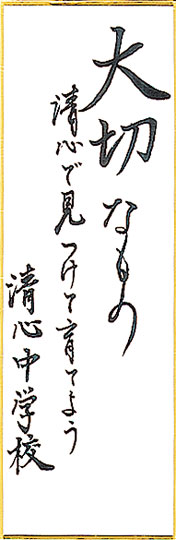 大切なもの
清心で見つけて育てよう
清心中学校